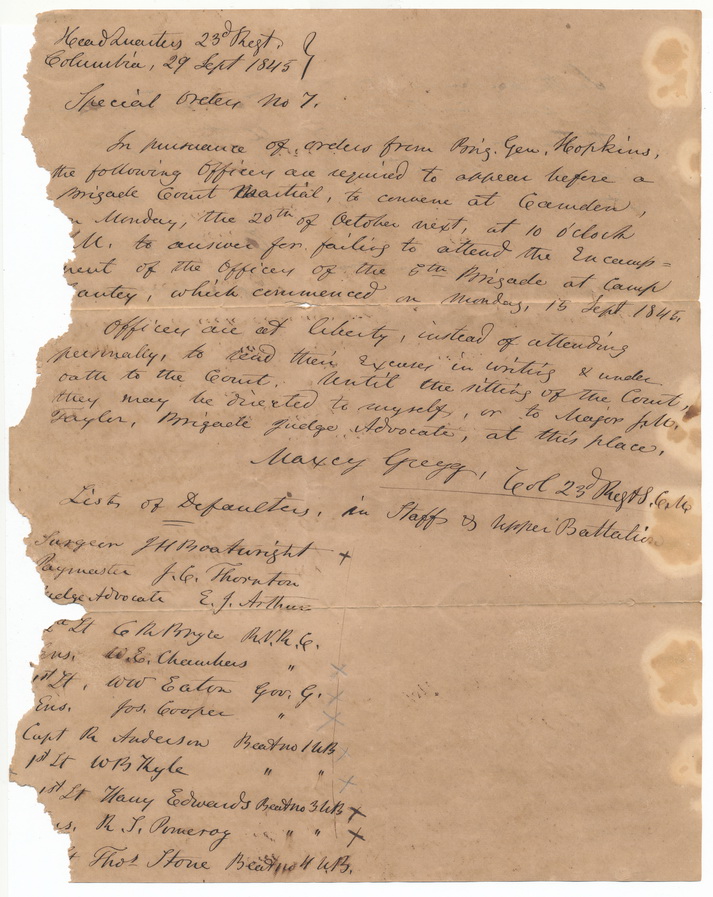 Head Quarters 23d Regt.
Columbia, 29 Sept 1845
Special Orders No 7.
In pursuance of orders from Brig. Gen. Hopkins,
the following Officers are required to appear before a
Brigade Court Martial, to convene at Camden,
n Monday, the 20th of October next, at 10 o'clock
M. to answer for failing to attend the Encamp=
ment of the Officers of the 5th Brigade at Camp
antey, which commenced on Monday, 15 Sept 1845.
Officers are at liberty, instead of attending
personally, to send their Excuses in writing & under
oath to the Court. Until the sitting of the Court,
they may be directed to myself, or to Major J.M.
Taylor, Brigade Judge Advocate, at this place.
Maxcy Gregg, Col 23d Regt S.C.M.
Lists of Defaulters, in Staff & Upper Battalion
Surgeon JH Boatwright +
Paymaster J.C. Thornton
udge Advocate E. J. Arthur
Lt C R Bryce R.V.R.C.
Ens. W.E. Chambers "
1st Lt. WW Eaton Gov. G.
Ens. Jos. Cooper "
Capt R Anderson Beat no 1 UB
1st Lt W B Kyle " "
1st Lt Harry Edwards Beat no 3 UB
s. R. J. Pomeroy " "
t Thos Stone Beat no 4 U.B.